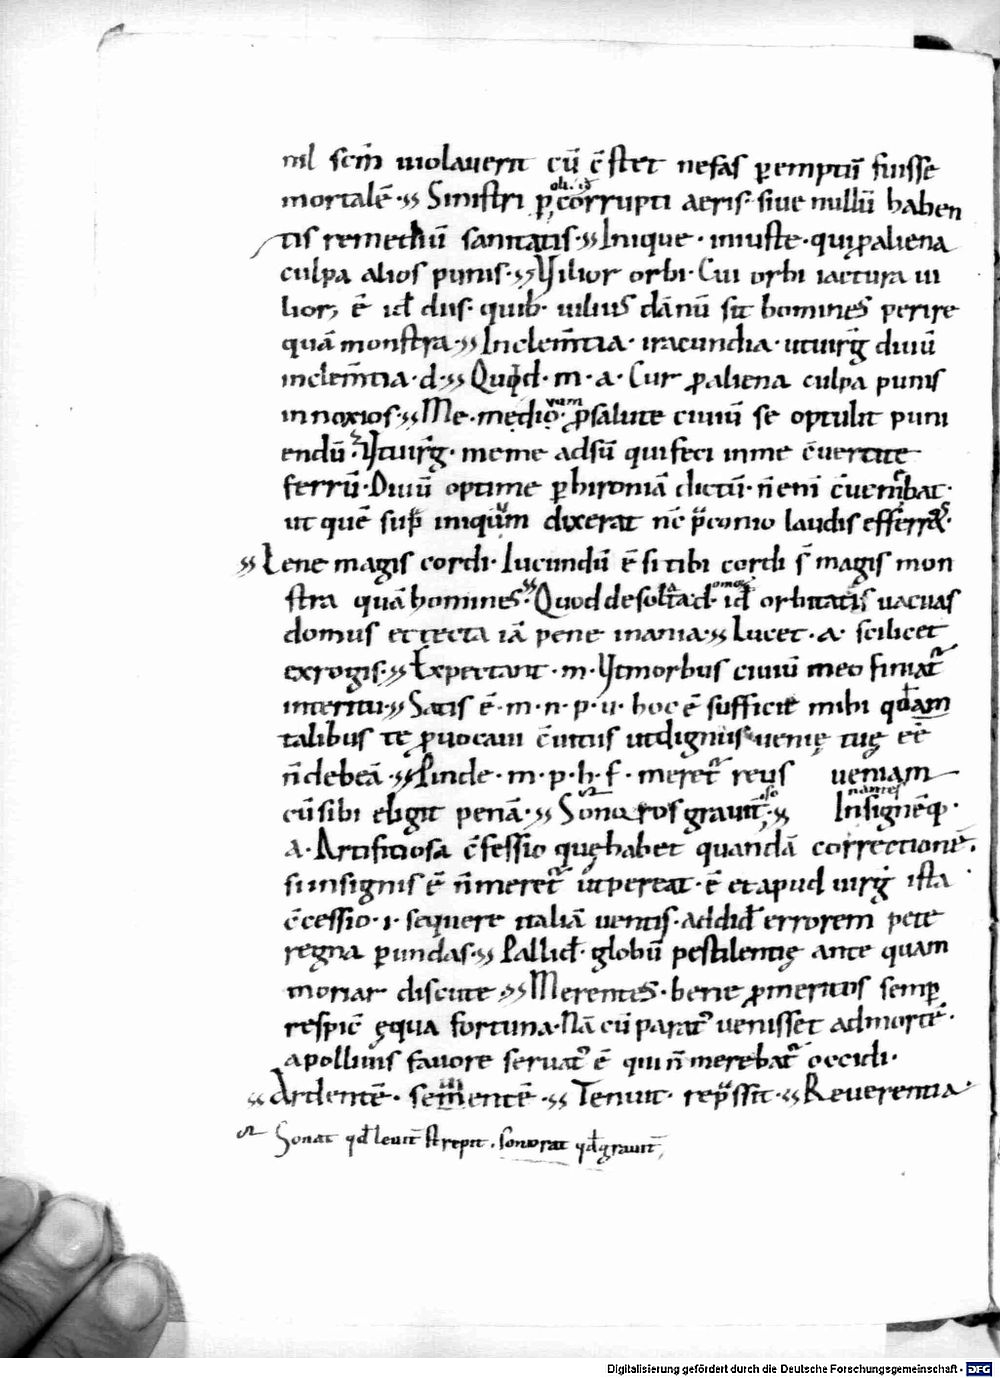 nil scm̄ uiolauerit cū ē ſtet nefas ꝑemptū fuiſſe
mortalē · Siniſtri ꝑ corrupti aeris · ſiue nullū haben
tis remediū sanitatis · Inique · iniuſte · qui ꝓ aliena
culpa alios punis · Vilior orbi · Cui orbi iactura ui
lior, ē id dīis · quib · uilius dānū ſit homines perire
quā monſtra · Inclem̄tia · iracundia · ut uirḡ diuū
inclem̄tia · d · Quid · m · a · Cur ꝓ aliena culpa punis
innoxios · Me · medio · ꝓ salute ciuiū se optulit puni
endū · Vt uirg̅ · meme adſū qui feci in me c̄uertite
ferrū · Diuū optime ꝑ hironiā dictū · n̄ eni
ut quē ſup iniquum dixerat nc̄ p̄conio laudis efferret ·
Lene magis cordi · Iucundū ē ſi tibi cordi ſ̄ magis mon
ſtra quā homines · Quod deſolata d · id orbitatis uacuas
domus et tecta iā pene inania · Lucet · a · scilicet
ex rogis · Expectant · m · Vt morbus ciuiū meo finiat᷑
interitu · Satis ē · m · n · p · u · hoc ē ſufficit mihi qđ am
talibus te ꝓuocaui c̄uitiis ut dignus uenię tuę eē
n̄ debeā · Proinde · m · p · h · f · meret᷑ reus ueniam
cū ſibi eligit penā · Sono ros grauit̄ · Inſignēq ·
a · Artificioſa c̄feſſio quę habet quandā correctionē ·
ſi inſignis ē n̄ meret᷑ ut pereat · ē et apud uirg̅ iſta
c̄ceſſio · i · sequere italiā uentis · addid̄ errorem pete
regna ꝑ undas · Pallid̄ · globū peſtilentię ante quam
moriar diſcute · Merentes · bene ꝓmeritos semp
reſpic̄ ęqua fortuna · Nā cū parat᷑ ueniſſet ad mortē ·
apollinis fauore ſeruat᷑ ē qui n̄ merebat᷑ occidi ·
Ardentē · sementē · Tenuit · rep̄ſſit · Reuerentia ·
Sonat qđ leuit̄ ſtrepit · sonorat qđ grauit̄,